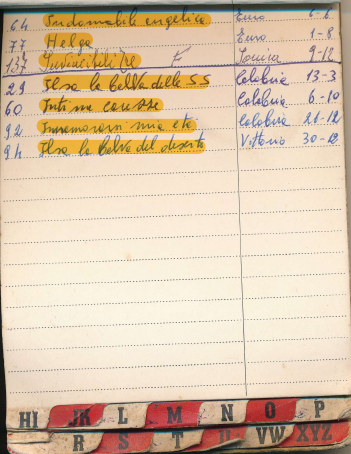 64 Indomabile angelica Euro 6-6
77 Helga Euro 1-8
137 Invincibili tre F Jonica 9-12
29 Ilsa la belva delle SS Calabria 13-3
60 Intima Calabria 6-10
92 Innamorarsi mia età Calabria 21-12
94 Ilsa la belva del deserto Vittoria 30-12
HI JK L M N O P
R S T U VW XYZ